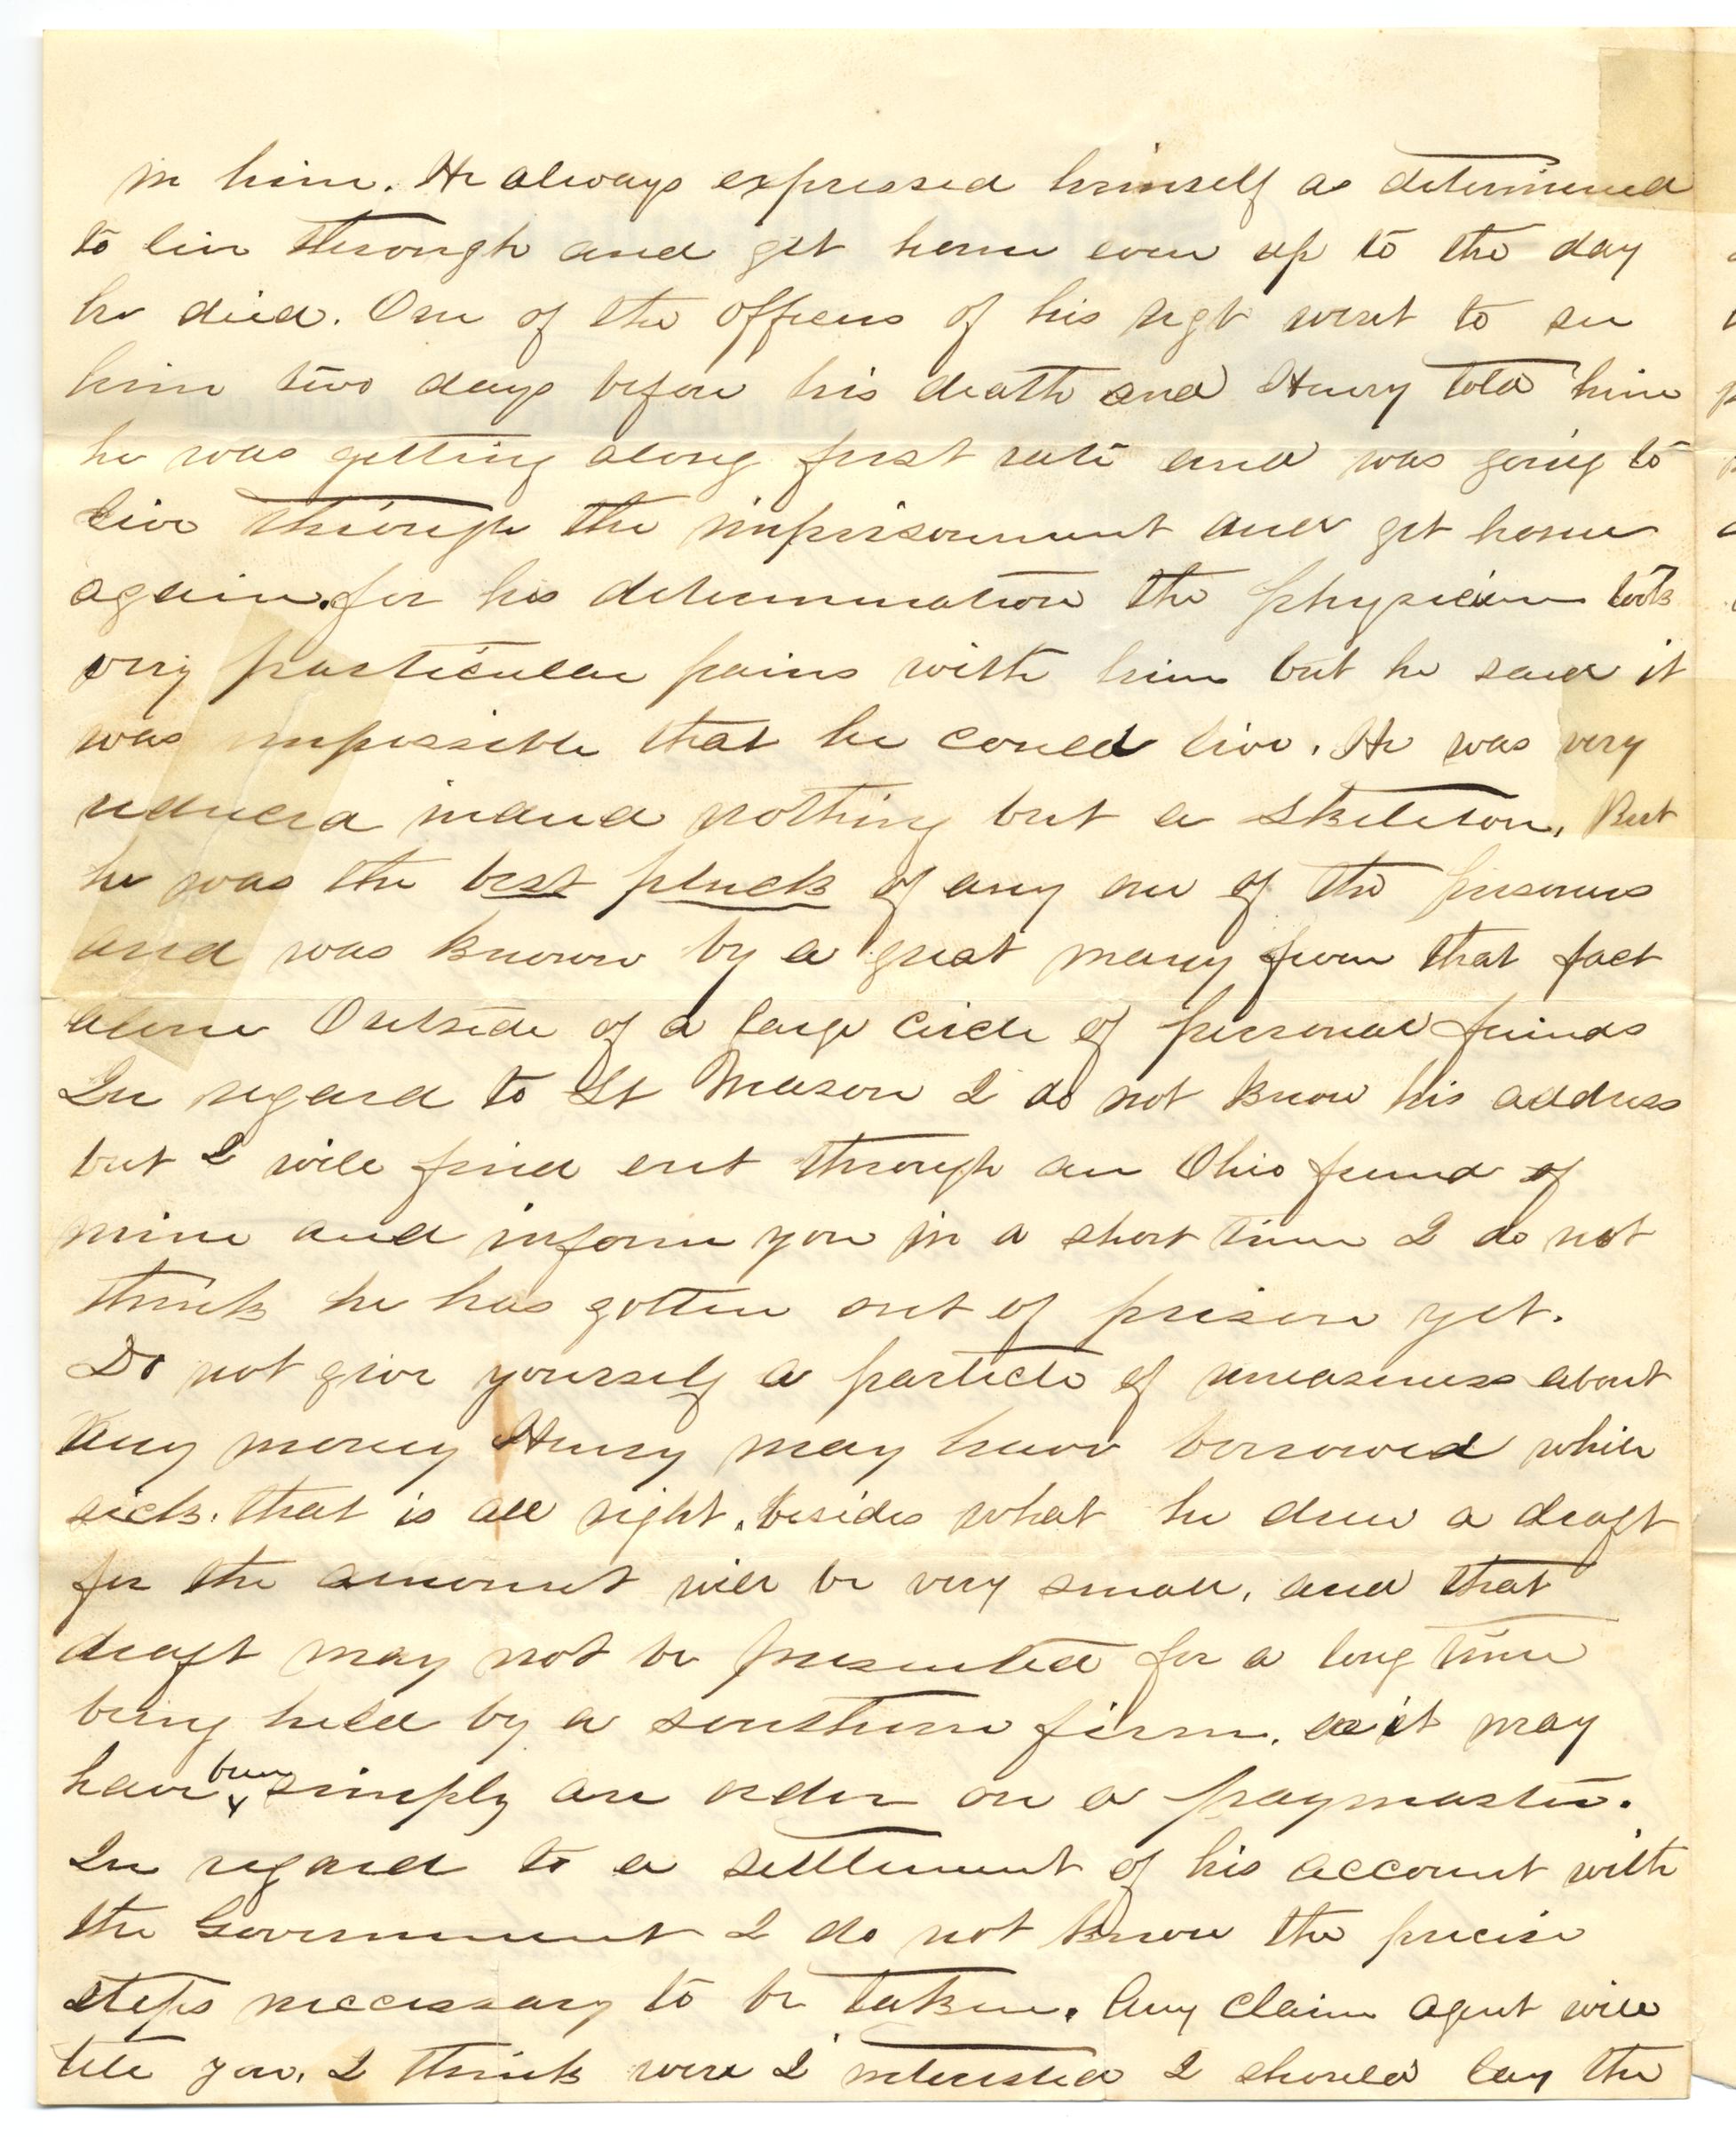 in him. He always expressed himself as determined
to live through and get home even up to the day
he died. One of the officers of his regt went to see
him two days before his death and Henry told him
he was getting along first rate and was going to
live through the imprisonment and get home
again. for his determination the physician took
very particular pains with him but he said it
was impossible that he could live. He was very
reduced indeed nothing but a skeleton. But
he was the best pluck of any one of the prisoners
and was known by a great many from that fact
alone Outside of a large circle of personal friends
In regard to Lt Mason I do not know his address
but I will find out through an Ohio friend of
mine and inform you in a short time I do not
think he has gotten out of prison yet.
Do not give yourself a particle of uneasiness about
any money Henry may have borrowed while
sick. that is all right. besides what he drew a draft
for the amount will be very small, and that
draft may not be presented for a long time
being held by a southern firm. it may
have been simply an order on a paymaster.
In regard to a settlement of his account with
the Government I do not know the precise
steps neccessary to be taken. Any claim agent will
tell you. I think were I interested I should lay the